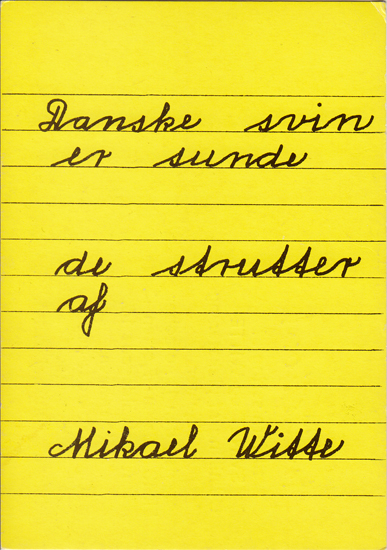 Danske svin
er sunde
de strutter
af
Mikael Witte